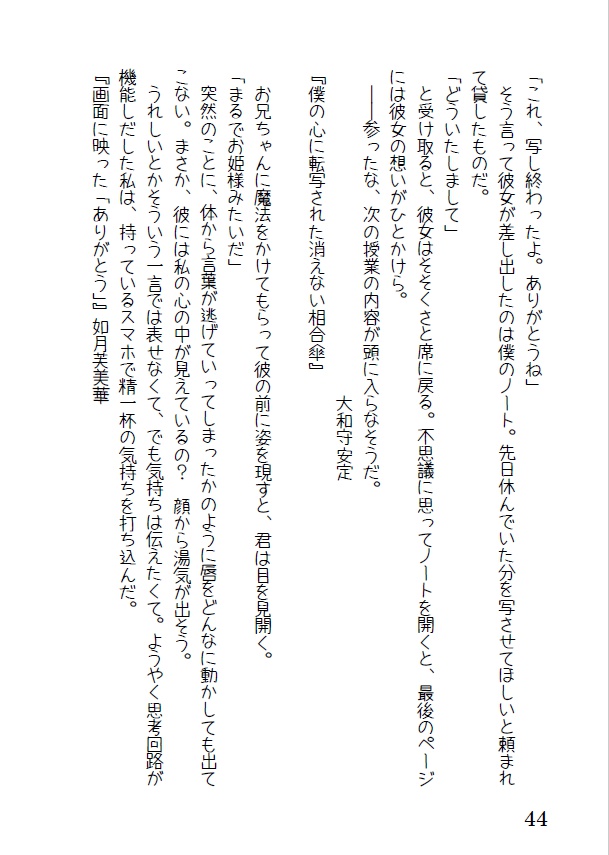 「これ、写し終わったよ。ありがとうね」
　そう言って彼女が差し出したのは僕のノート。先日休んでいた分を写させてほしいと頼まれ
て貸したものだ。
「どういたしまして」
　と受け取ると、彼女はそそくさと席に戻る。不思議に思ってノートを開くと、最後のページ
には彼女の想いがひとかけら。
　――参ったな、次の授業の内容が頭に入らなそうだ。
大和守安定
『僕の心に転写された消えない相合傘』
　お兄ちゃんに魔法をかけてもらって彼の前に姿を現すと、君は目を見開く。
「まるでお姫様みたいだ」
　突然のことに、体から言葉が逃げていってしまったかのように唇をどんなに動かしても出て
こない。まさか、彼には私の心の中が見えているの？　顔から湯気が出そう。
　うれしいとかそういう一言では表せなくて、でも気持ちは伝えたくて。ようやく思考回路が
機能しだした私は、持っているスマホで精一杯の気持ちを打ち込んだ。
『画面に映った「ありがとう」』如月芙美華
44